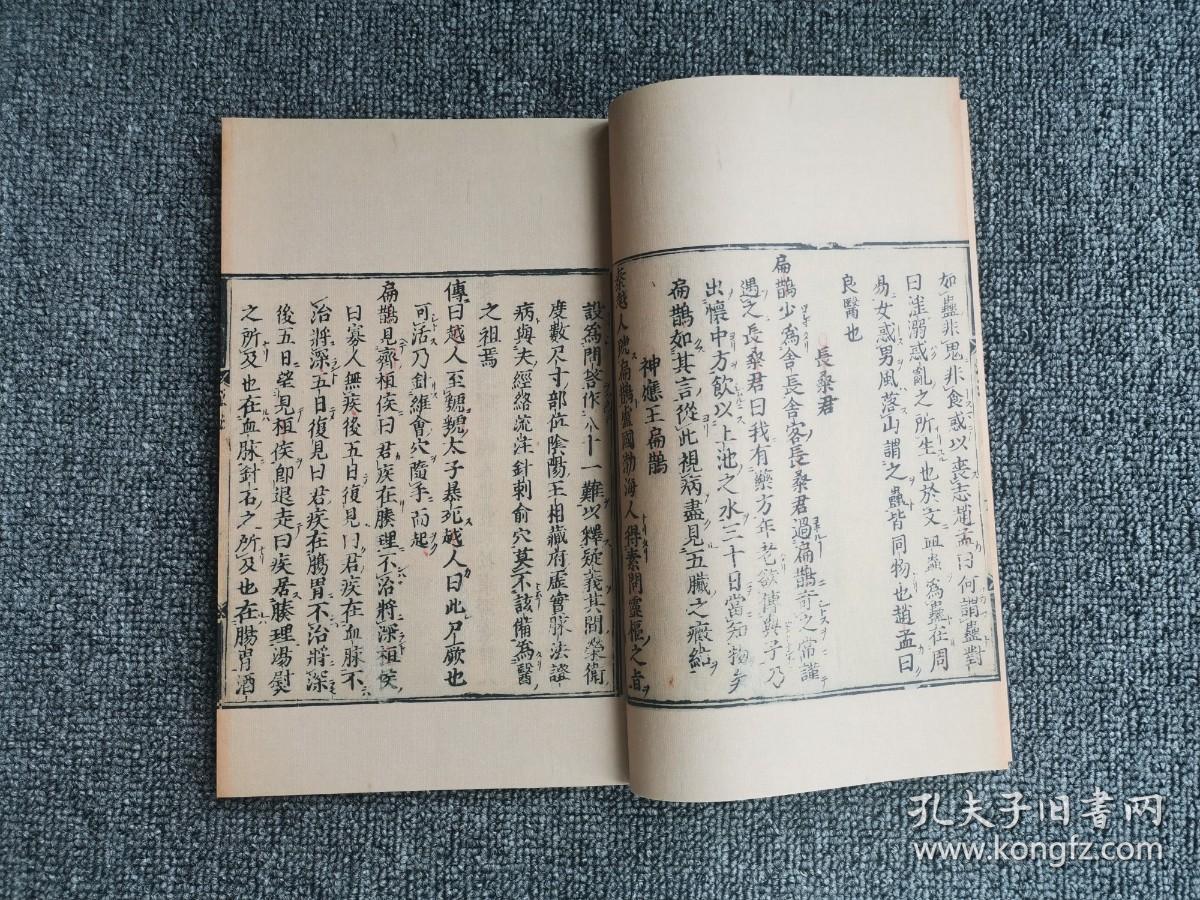 如蠱非鬼非食惑以喪志趙孟曰何謂蠱對
曰淫溺惑亂之所生也於文皿蟲為蠱在周
易女惑男風落山謂之蠱皆同物也趙孟曰
良醫也
長桑君
扁鵲少為舍長舍客長桑君過扁鵲奇之常謹
遇之長桑君曰我有藥方年老欲傳與子乃
出懷中方飲以上池之水三十日當知物矣
扁鵲如其言從此視病盡見五臟之癥結
神應王扁鵲
秦越人號扁鵲盧國勃海人得素問靈樞之旨
設為問答作八十一難以釋疑義其間榮衛
度數尺寸部位陰陽王相藏府虛實脉法證
病與夫經絡流注針刺俞穴莫不該備為醫
之祖焉
傳曰越人至虢虢太子暴死越人曰此尸厥也
可活乃針維會穴隨手而起
扁鵲見齊桓侯曰君疾在腠理不治將深桓侯
曰寡人無疾後五日復見曰君疾在血脉不
治將深五日復見曰君疾在腸胃不治將深
後五日望見桓侯即退走曰疾居腠理湯熨
之所及也在血脉針石之所及也在腸胃酒
孔夫子旧書网
www.kongfz.com